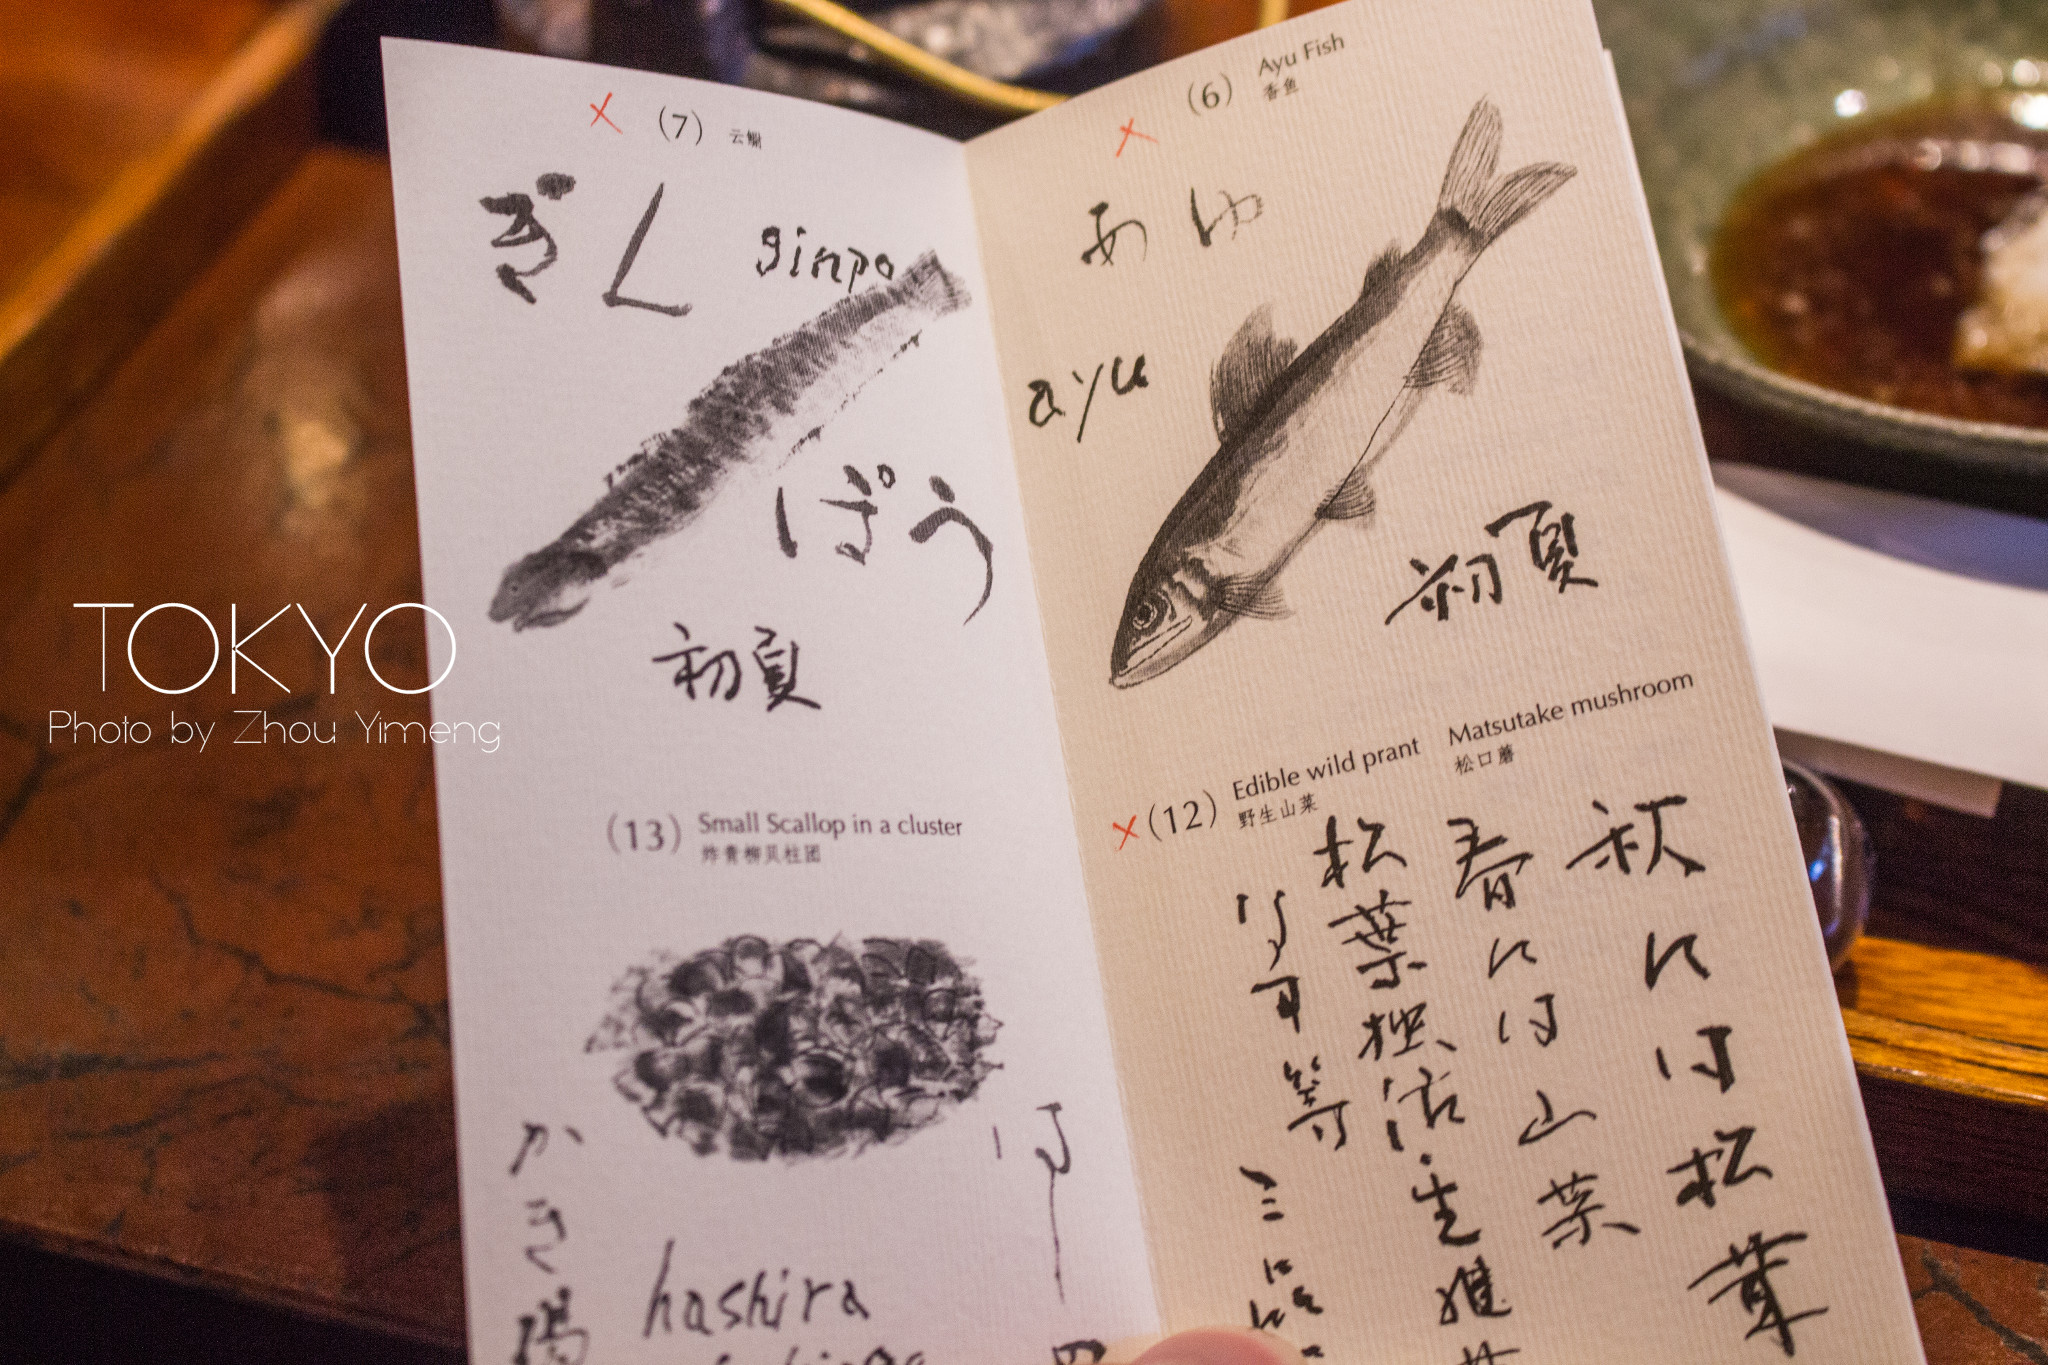 (7) 云鳚
ぎん
ginpo
ぽう
初夏
(13) Small Scallop in a cluster
炸青柳贝柱团
かき揚
hashira
(6) Ayu Fish
香鱼
あゆ
ayu
初夏
(12) Edible wild prant
野生山菜
Matsutake mushroom
松口蘑
秋には松葉
春には山菜
松葉独活・生椎
等
TOKYO
Photo by Zhou Yimeng